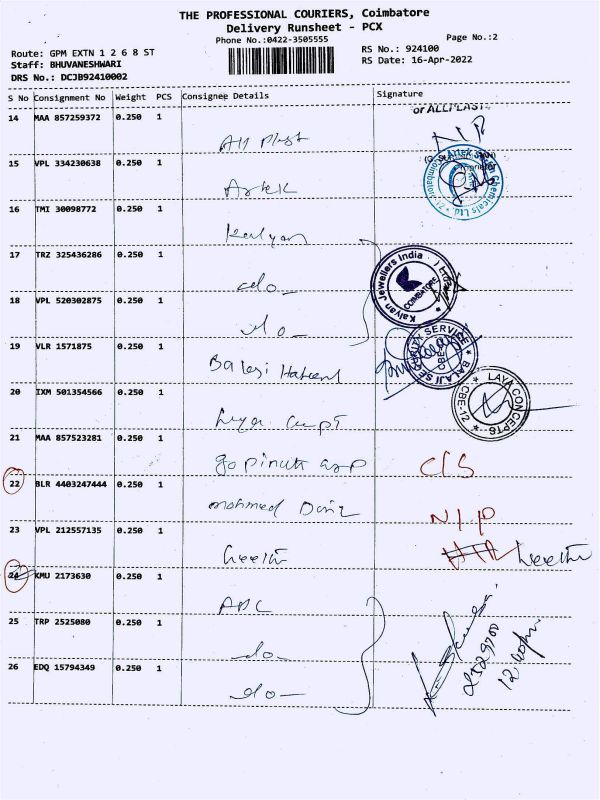 THE PROFESSIONAL COURIERS, Coimbatore
Delivery Runsheet - PCX
Phone No.:0422-3505555
Page No.:2
Route: GPM EXTN 1 2 6 8 ST
Staff: BHUVANESHWARI
DRS No.: DCJB92410002
RS No.: 924100
RS Date: 16-Apr-2022
S No Consignment No Weight PCS Consignee Details Signature
or ALLPLAST
14 MAA 857259372 0.250 1 All Plast N/P
15 VPL 334230638 0.250 1 Artek
Artek Chemicals Ltd. Coimbatore-12
16 TMI 30098772 0.250 1 Kalyan
17 TRZ 325436286 0.250 1 do
Kalyan Jewellers India COIMBATORE
18 VPL 520302875 0.250 1 do
19 VLR 1571875 0.250 1 Balaji
BALAJI SECURITY SERVICE CBE
20 IXM 501354566 0.250 1 Laya
LAYA CONCEPTS CBE-12
21 MAA 857523281 0.250 1 gopinath C/S
22 BLR 4403247444 0.250 1 mohmed N/P
23 VPL 212557135 0.250 1 Geethi Geethi
24 KMU 2173630 0.250 1 ADC
25 TRP 2525080 0.250 1 do
26 EDQ 15794349 0.250 1 do
2529700
12.40pm